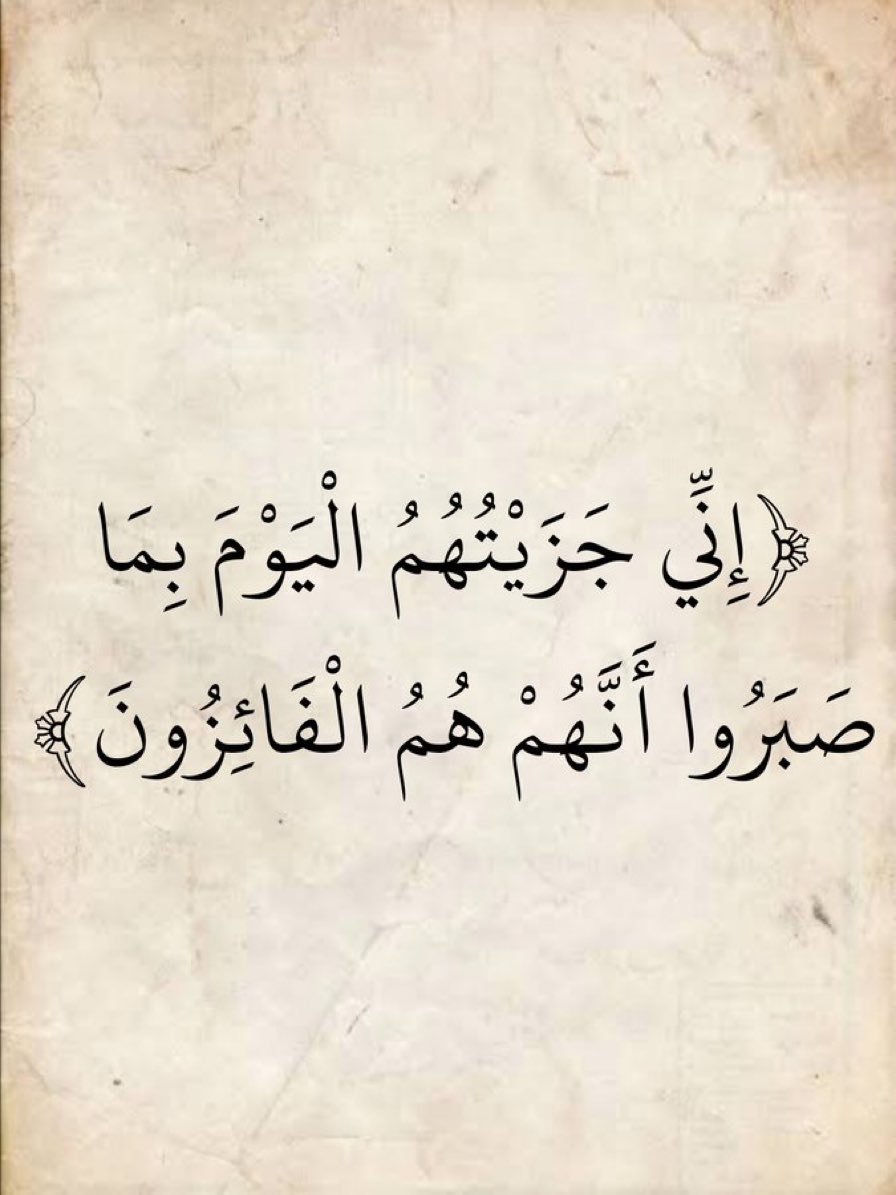 ﴿إِنِّي جَزَيْتُهُمُ الْيَوْمَ بِمَا
صَبَرُوا أَنَّهُمْ هُمُ الْفَائِزُونَ﴾